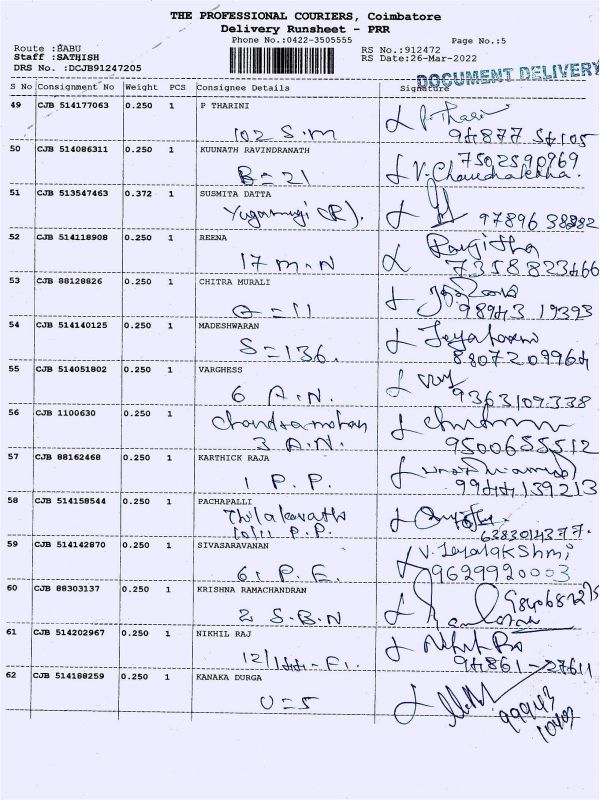 THE PROFESSIONAL COURIERS, Coimbatore
Delivery Runsheet - PRR
Phone No.:0422-3505555
Page No.:5
Route :BABU
RS No.:912472
Staff :SATHISH
RS Date:26-Mar-2022
DRS No. :DCJB91247205
DOCUMENT DELIVERY
S No Consignment No Weight PCS Consignee Details Signature
49 CJB 514177063 0.250 1 P THARINI
102 S.M
50 CJB 514086311 0.250 1 KUUNATH RAVINDRANATH
7502590969
B=21
51 CJB 513547463 0.372 1 SUSMITA DATTA
(R).
97896 38882
52 CJB 514118908 0.250 1 REENA
17 M.N
7358823466
53 CJB 88128826 0.250 1 CHITRA MURALI
98943 19393
54 CJB 514140125 0.250 1 MADESHWARAN
S=136.
8807209964
55 CJB 514051802 0.250 1 VARGHESS
6 A.N.
9363109338
56 CJB 1100630 0.250 1 Chandramohan
3 A.N.
9500655512
57 CJB 88162468 0.250 1 KARTHICK RAJA
1 P.P.
9944139213
58 CJB 514158544 0.250 1 PACHAPALLI
Thilakavathi
10/11 P.P.
6383014377.
59 CJB 514142870 0.250 1 SIVASARAVANAN
V. Jeyalakshmi
61 P.E.
9629920003
60 CJB 88303137 0.250 1 KRISHNA RAMACHANDRAN
2 S.B.N
61 CJB 514202967 0.250 1 NIKHIL RAJ
12/144-F1.
94861-27611
62 CJB 514188259 0.250 1 KANAKA DURGA
U=5
99943